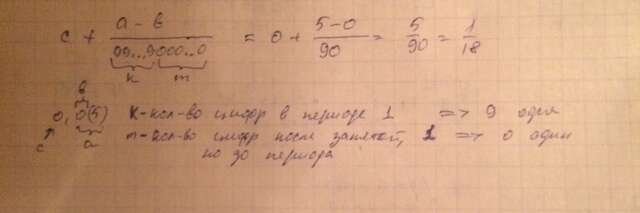 c + (a - в)/(99...9000..0) = 0 + (5-0)/90 = 5/90 = 1/18
к m
в
0,0(5) к-кол-во цифр в периоде 1 => 9 одна
c a m-кол-во цифр после запятой, 1 => 0 один
но до периода